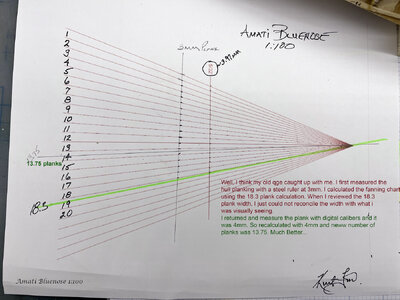 Amati Bluenose
1:100
1
2
3
4
5
6
7
8
9
10
11
12
13
14
15
16
17
18
19
20
3.97mm
13.75
13.75 planks
18.3
Well, I think my old age caught up with me. I first measured the
hull planking with a steel ruler at 3mm. I calculated the fanning chart
using the 18.3 plank calculation. When I reviewed the 18.3
plank width, I just could not reconcile the width with what i
was visually seeing.
I returned and measure the plank with digital calibers and it
was 4mm. So recalculated with 4mm and neww number of
planks was 13.75. Much Better..
Amati Bluenose 1:100